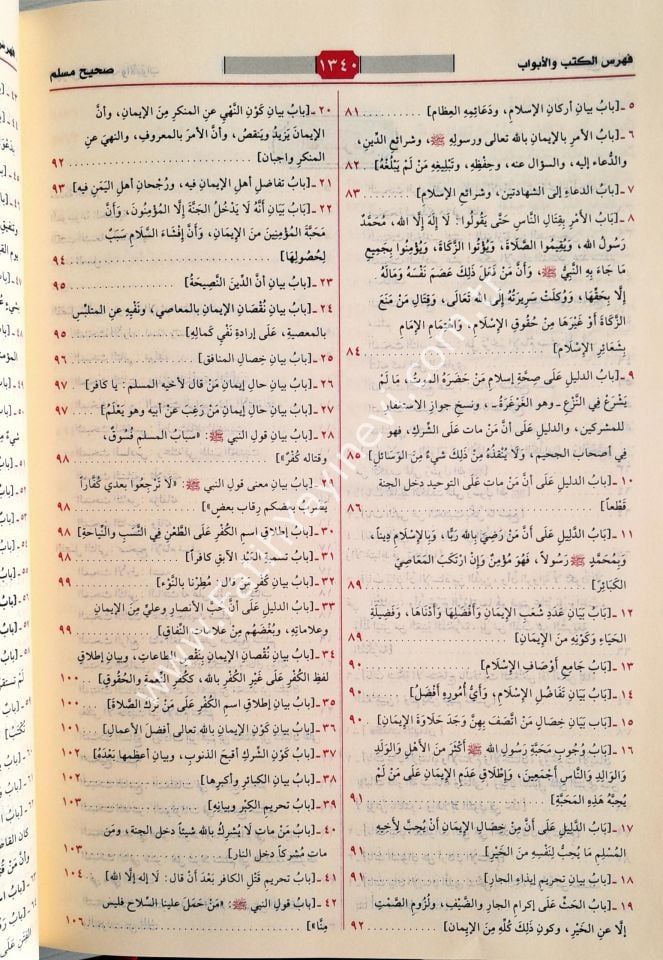 فهرس الكتب والأبواب
١٣٤٠
صحيح مسلم
٥ ـ [بابُ بيان أركان الإسلام، ودَعَائِمِهِ العِظام] ٨١
٦ ـ [بابُ الأمر بالإيمان بالله تعالى ورسولِهِ ﷺ، وشرائع الدِّين،
والدُّعاء إليه، والسؤال عنه، وحِفْظِه، وتَبْلِيغِهِ مَنْ لَمْ يَبْلُغْهُ] ٨٢
٧ ـ [بابُ الدعاءِ إلى الشهادتين، وشرائع الإسلام] ٨٣
٨ ـ [بابُ الأَمْرِ بقِتَالِ النَّاسِ حَتَّى يَقُولُوا: لَا إِلٰهَ إِلَّا الله، مُحَمَّدٌ
رَسُولُ الله، وَيُقِيمُوا الصَّلَاةَ، وَيُؤْتُوا الزَّكَاةَ، وَيُؤْمِنُوا بِجَمِيعِ
مَا جَاءَ بِهِ النَّبِيُّ ﷺ، وَأَنَّ مَنْ فَعَلَ ذَلِكَ عَصَمَ نَفْسَهُ وَمَالَهُ
إِلَّا بِحَقِّهَا، وَوُكِلَتْ سَرِيرَتُهُ إِلَى الله تَعَالَى، وَقِتَالِ مَنْ مَنَعَ
الزَّكَاةَ أَوْ غَيْرَهَا مِنْ حُقُوقِ الإِسْلَامِ، وَاهْتِمَامِ الإِمَامِ
بِشَعَائِرِ الإِسْلَامِ] ٨٤
٩ ـ [بابُ الدليل عَلَى صِحَّةِ إسلام مَنْ حَضَرَهُ الموتُ، مَا لَمْ
يَشْرَعْ فِي النَّزْعِ ـ وهو الغَرْغَرَةُ ـ، ونسخِ جوازِ الاستغفارِ
للمشركين، والدليلِ عَلَى أنَّ مَنْ مات عَلَى الشِّرْكِ، فهو
في أصحاب الجحيم، وَلَا يُنْقِذُهُ مِنْ ذَلِكَ شيءٌ مِنَ الوَسَائِلِ] ٨٥
١٠ ـ [بابُ الدليلِ عَلَى أنَّ مَنْ مات عَلَى التوحيد دخل الجنة
قَطْعاً] ٨٦
١١ ـ [بابُ الدَّلِيلِ عَلَى أَنَّ مَنْ رَضِيَ بالله رَبًّا، وَبِالإِسْلَامِ دِيناً،
وَبِمُحَمَّدٍ ﷺ رَسُولاً، فَهُوَ مُؤْمِنٌ وَإِنْ ارْتَكَبَ المَعَاصِيَ
الكَبَائِرَ] ٨٩
١٢ ـ [بَابُ بَيَانِ عَدَدِ شُعَبِ الإِيمَانِ وَأَفْضَلِهَا وَأَدْنَاهَا، وَفَضِيلَةِ
الحَيَاءِ وَكَوْنِهِ مِنَ الإيمانِ] ٨٩
١٣ ـ [بَابُ جَامِعِ أَوْصَافِ الإِسْلَامِ] ٩٠
١٤ ـ [بَابُ بَيَانِ تَفَاضُلِ الإِسْلَامِ، وَأَيُّ أُمُورِهِ أَفْضَلُ] ٩٠
١٥ ـ [بَاب بَيَانِ خِصَالٍ مَنْ اتَّصَفَ بِهِنَّ وَجَدَ حَلَاوَةَ الإِيمَانِ] ٩٠
١٦ ـ [بَابُ وُجُوبِ مَحَبَّةِ رَسُولِ الله ﷺ أَكْثَرَ مِنَ الأَهْلِ وَالْوَلَدِ
وَالْوَالِدِ وَالنَّاسِ أَجْمَعِينَ، وَإِطْلَاقِ عَدَمِ الإِيمَانِ عَلَى مَنْ لَمْ
يُحِبَّهُ هَذِهِ المَحَبَّةِ] ٩١
١٧ ـ [بَابُ الدَّلِيلِ عَلَى أَنَّ مِنْ خِصَالِ الإِيمَانِ أَنْ يُحِبَّ لِأَخِيهِ
المُسْلِمِ مَا يُحِبُّ لِنَفْسِهِ مِنَ الخَيْرِ] ٩١
١٨ ـ [بابُ بيانِ تحريم إيذاءِ الجارِ] ٩١
١٩ ـ [بابُ الحَثِّ عَلَى إكرام الجارِ والضَّيْفِ، ولُزُومِ الصَّمْتِ
إلَّا عن الخَيْرِ، وكونِ ذلكَ كُلِّهِ مِنَ الإيمان] ٩٢
٢٠ ـ [بابُ بيانِ كَوْنِ النَّهْيِ عن المنكرِ مِنَ الإيمانِ، وأنَّ
الإيمانَ يَزِيدُ ويَنقصُ، وأنَّ الأمرَ بالمعروفِ، والنهيَ عنِ
المنكرِ واجبانِ] ٩٢
٢١ ـ [بابُ تفاضلِ أهلِ الإيمان فيه، ورُجْحانِ أهلِ اليَمَنِ فيه] ٩٣
٢٢ ـ [بَابُ بَيَانِ أَنَّهُ لَا يَدْخُلُ الجَنَّةَ إِلَّا المُؤْمِنُونَ، وَأَنَّ
مَحَبَّةَ المُؤْمِنِينَ مِنَ الإيمَانِ، وَأَنَّ إِفْشَاءَ السَّلَامِ سَبَبٌ
لِحُصُولِهَا] ٩٤
٢٣ ـ [بابُ بيانِ أنَّ الدِّينَ النَّصِيحَةُ] ٩٥
٢٤ ـ [بابُ بيانِ نُقْصَانِ الإيمانِ بالمعاصي، ونَفْيِهِ عنِ المتلبِّسِ
بالمعصيةِ، عَلَى إرادةِ نَفْيِ كمالِهِ] ٩٥
٢٥ ـ [بابُ بيانِ خِصالِ المنافقِ] ٩٦
٢٦ ـ [بابُ بيانِ حالِ إيمانِ مَنْ قالَ لأخيهِ المسلمِ: يا كافر] ٩٧
٢٧ ـ [بابُ بيانِ حالِ إيمانِ مَنْ رَغِبَ عنْ أبيهِ وهو يَعْلَمُ] ٩٧
٢٨ ـ [بابُ بيانِ قولِ النبي ﷺ: «سِبَابُ المسلم فُسُوقٌ،
وقتاله كُفْرٌ»] ٩٨
٢٩ ـ [بابُ بيانِ معنى قولِ النبي ﷺ: «لَا تَرْجِعُوا بعدي كُفَّاراً
يَضْرِبُ بعضُكم رِقابَ بعض»] ٩٨
٣٠ ـ [بابُ إطلاقِ اسمِ الكُفْرِ عَلَى الطَّعْنِ فِي النَّسَبِ والنِّيَاحةِ] ٩٨
٣١ ـ [بابُ تسميةِ العَبْدِ الآبقِ كافراً] ٩٨
٣٢ ـ [بابُ بيانِ كُفْرِ مَنْ قالَ: مُطِرْنا بالنَّوْءِ] ٩٩
٣٣ ـ [بابُ الدليلِ عَلَى أنَّ حُبَّ الأنصارِ وعليٍّ مِنَ الإيمانِ
وعلاماتِهِ، وبُغْضَهُم مِنْ علاماتِ النِّفاقِ] ٩٩
٣٤ ـ [بابُ بيانِ نُقْصَانِ الإيمانِ بنَقْصِ الطاعاتِ، وبيانِ إطلاقِ
لفظِ الكُفْرِ عَلَى غَيْرِ الكُفْرِ بالله، ككُفْرِ النِّعمةِ والحُقوقِ] ١٠٠
٣٥ ـ [بابُ بيانِ إطلاقِ اسمِ الكُفْرِ عَلَى مَنْ تركَ الصلاةَ] ١٠٠
٣٦ ـ [بابُ بيانِ كَوْنِ الإيمانِ بالله تعالى أفضلَ الأعمالِ] ١٠١
٣٧ ـ [بابُ كَوْنِ الشركِ أقبحَ الذنوبِ، وبيانِ أعظمِها بَعْدَهُ] ١٠٢
٣٨ ـ [بابُ بيانِ الكبائرِ وأكبرِها] ١٠٢
٣٩ ـ [بابُ تحريمِ الكِبْرِ وبيانِهِ] ١٠٣
٤٠ ـ [بابُ مَنْ ماتَ لَا يُشركُ بالله شيئاً دخلَ الجنةَ، ومَن
ماتَ مُشركاً دخل النار] ١٠٣
٤١ ـ [بابُ تحريمِ قَتْلِ الكافرِ بَعْدَ أنْ قال: لَا إلهَ إلَّا الله] ١٠٤
٤٢ ـ [بابُ قولِ النبي ﷺ: «مَنْ حَمَلَ علينا السِّلاحَ فليس
مِنَّا»] ١٠٦